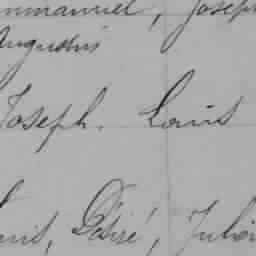 Emmanuel, Joseph
Augustus
Joseph. Louis
Louis, Désiré, Julien